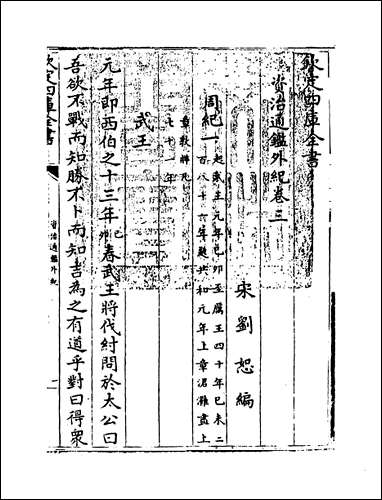 欽定四庫全書
資治通鑑外紀卷三
宋劉恕編
周紀一起武王元年己卯至厲王四十年己未二
百八十六年起共和元年上章涒灘盡上
章敦牂凡
七十一年
武王
元年即西伯之十三年己卯春武王將伐紂問於太公曰
吾欲不戰而知勝不卜而知吉為之有道乎對曰得衆
欽定四庫全書
資治通鑑外紀